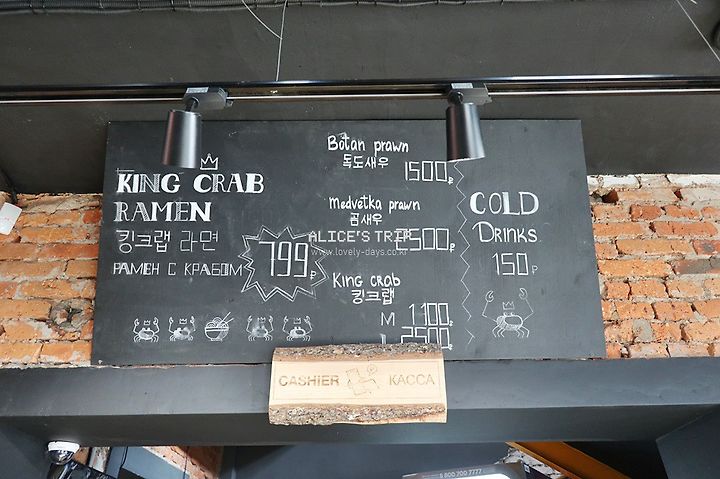 KING CRAB
RAMEN
킹크랩 라면
РАМЕН С КРАБОМ
799₽
Botan prawn
독도새우
1500₽
Medvetka prawn
곰새우
1500₽
King crab
킹크랩
M 1100₽
L 2500₽
COLD
DRINKS
150₽
ALICE'S TRIP
www.lovely-days.co.kr
CASHIER КАССА
8 800 700 7777